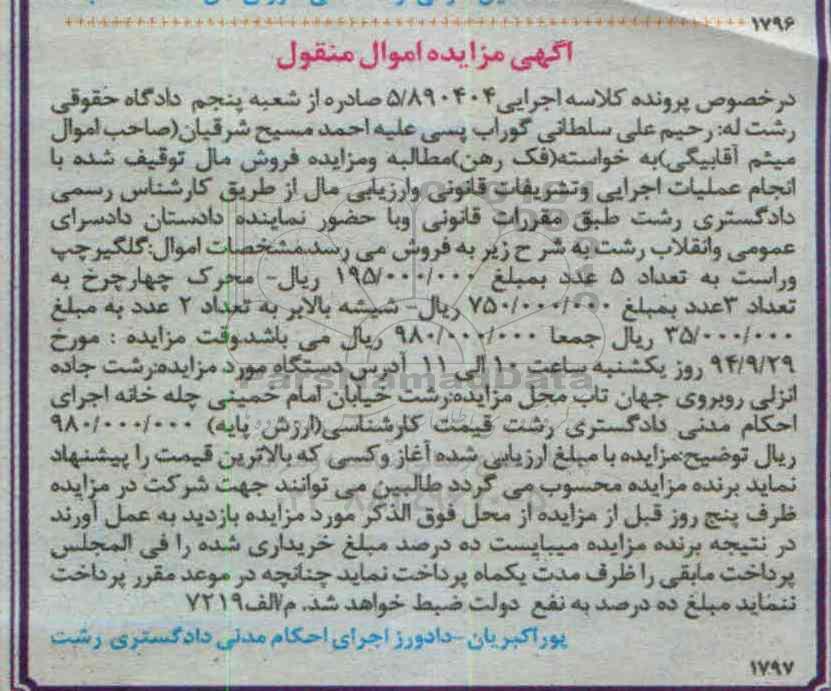 ۱۷۹۶
آگهی مزایده اموال منقول
درخصوص پرونده کلاسه اجرایی۵/۸۹۰۴۰۴ صادره از شعبه پنجم دادگاه حقوقی
رشت له: رحیم علی سلطانی گوراب پسی علیه احمد مسیح شرقیان(صاحب اموال
میثم آقابیگی)به خواسته(فک رهن)مطالبه ومزایده فروش مال توقیف شده با
انجام عملیات اجرایی وتشریفات قانونی وارزیابی مال از طریق کارشناس رسمی
دادگستری رشت طبق مقررات قانونی وبا حضور نماینده دادستان دادسرای
عمومی وانقلاب رشت به شر ح زیر به فروش می رسد.مشخصات اموال:گلگیرچپ
وراست به تعداد ۵ عدد بمبلغ ۱۹۵/۰۰۰/۰۰۰ ریال- محرک چهارچرخ به
تعداد ۳عدد بمبلغ ۷۵۰/۰۰۰/۰۰۰ ریال- شیشه بالابر به تعداد ۲ عدد به مبلغ
۳۵/۰۰۰/۰۰۰ ریال جمعا ۹۸۰/۰۰۰/۰۰۰ ریال می باشد.وقت مزایده : مورخ
۹۴/۹/۲۹ روز یکشنبه ساعت ۱۰ الی ۱۱ آدرس دستگاه مورد مزایده:رشت جاده
انزلی روبروی جهان تاب محل مزایده:رشت خیابان امام خمینی چله خانه اجرای
احکام مدنی دادگستری رشت قیمت کارشناسی(ارزش پایه) ۹۸۰/۰۰۰/۰۰۰
ریال توضیح:مزایده با مبلغ ارزیابی شده آغاز وکسی که بالاترین قیمت را پیشنهاد
نماید برنده مزایده محسوب می گردد طالبین می توانند جهت شرکت در مزایده
ظرف پنج روز قبل از مزایده از محل فوق الذکر مورد مزایده بازدید به عمل آورند
در نتیجه برنده مزایده میبایست ده درصد مبلغ خریداری شده را فی المجلس
پرداخت مابقی را ظرف مدت یکماه پرداخت نماید چنانچه در موعد مقرر پرداخت
ننماید مبلغ ده درصد به نفع دولت ضبط خواهد شد. م/الف۷۲۱۹
پوراکبریان-دادورز اجرای احکام مدنی دادگستری رشت
۱۷۹۷
ParsNamadData